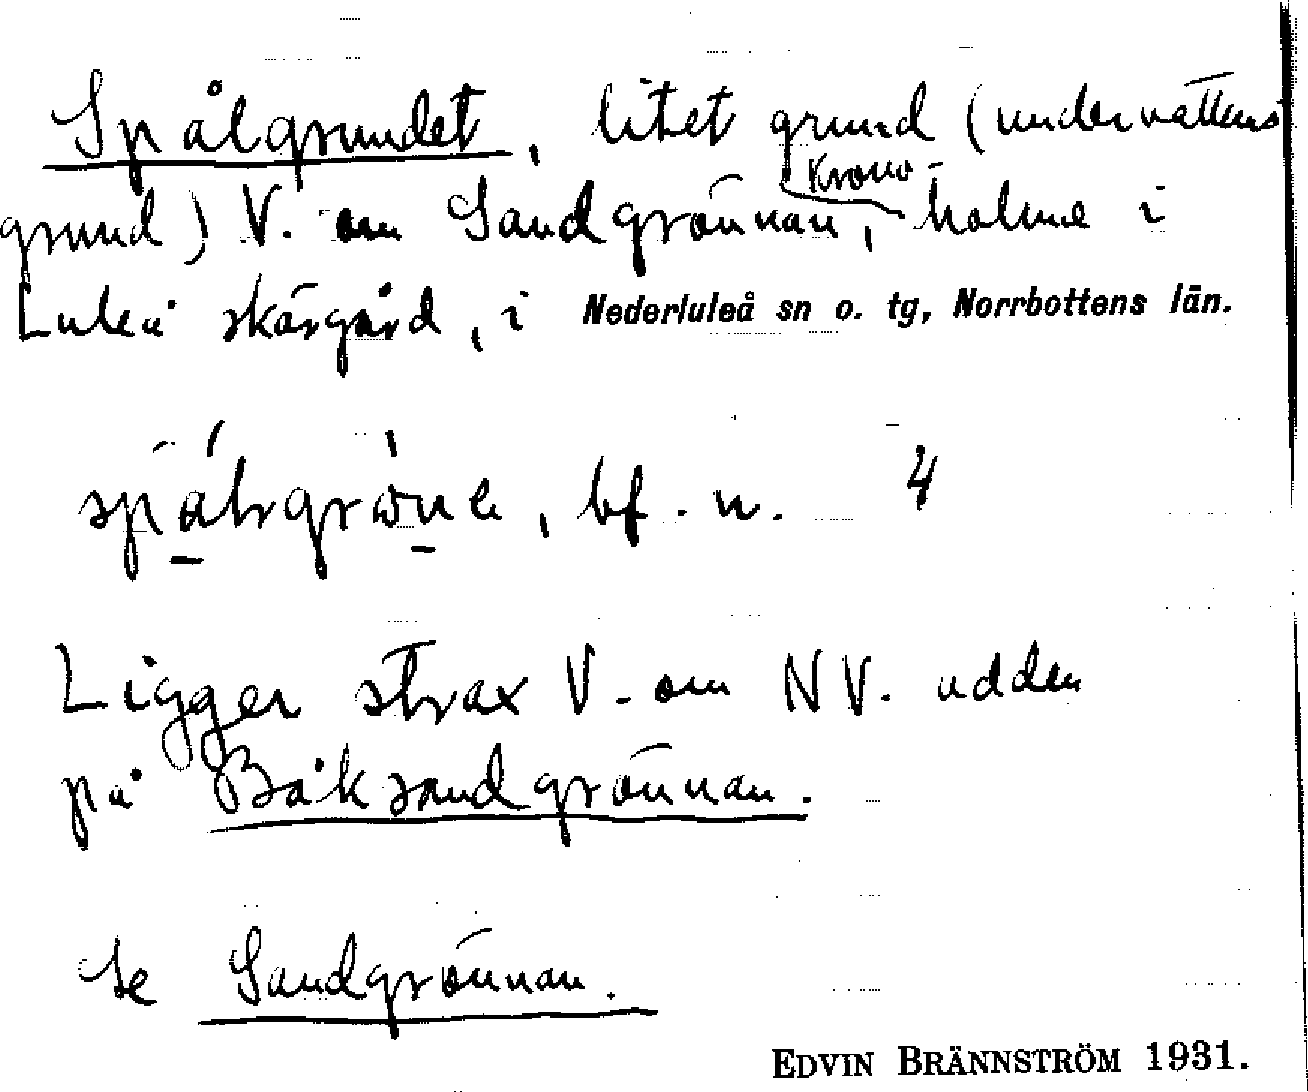 Spålgrundet, litet grund (undervattens
grund) V. om Sandgrönnan, Krono-holme i
Luleå skärgård, i Nederluleå sn o. tg, Norrbottens län.
bf. n. 4
Ligger strax V. om NV. udden
på Båksandgrönnan.
Se Sandgrönnan.
EDVIN BRÄNNSTRÖM 1931.